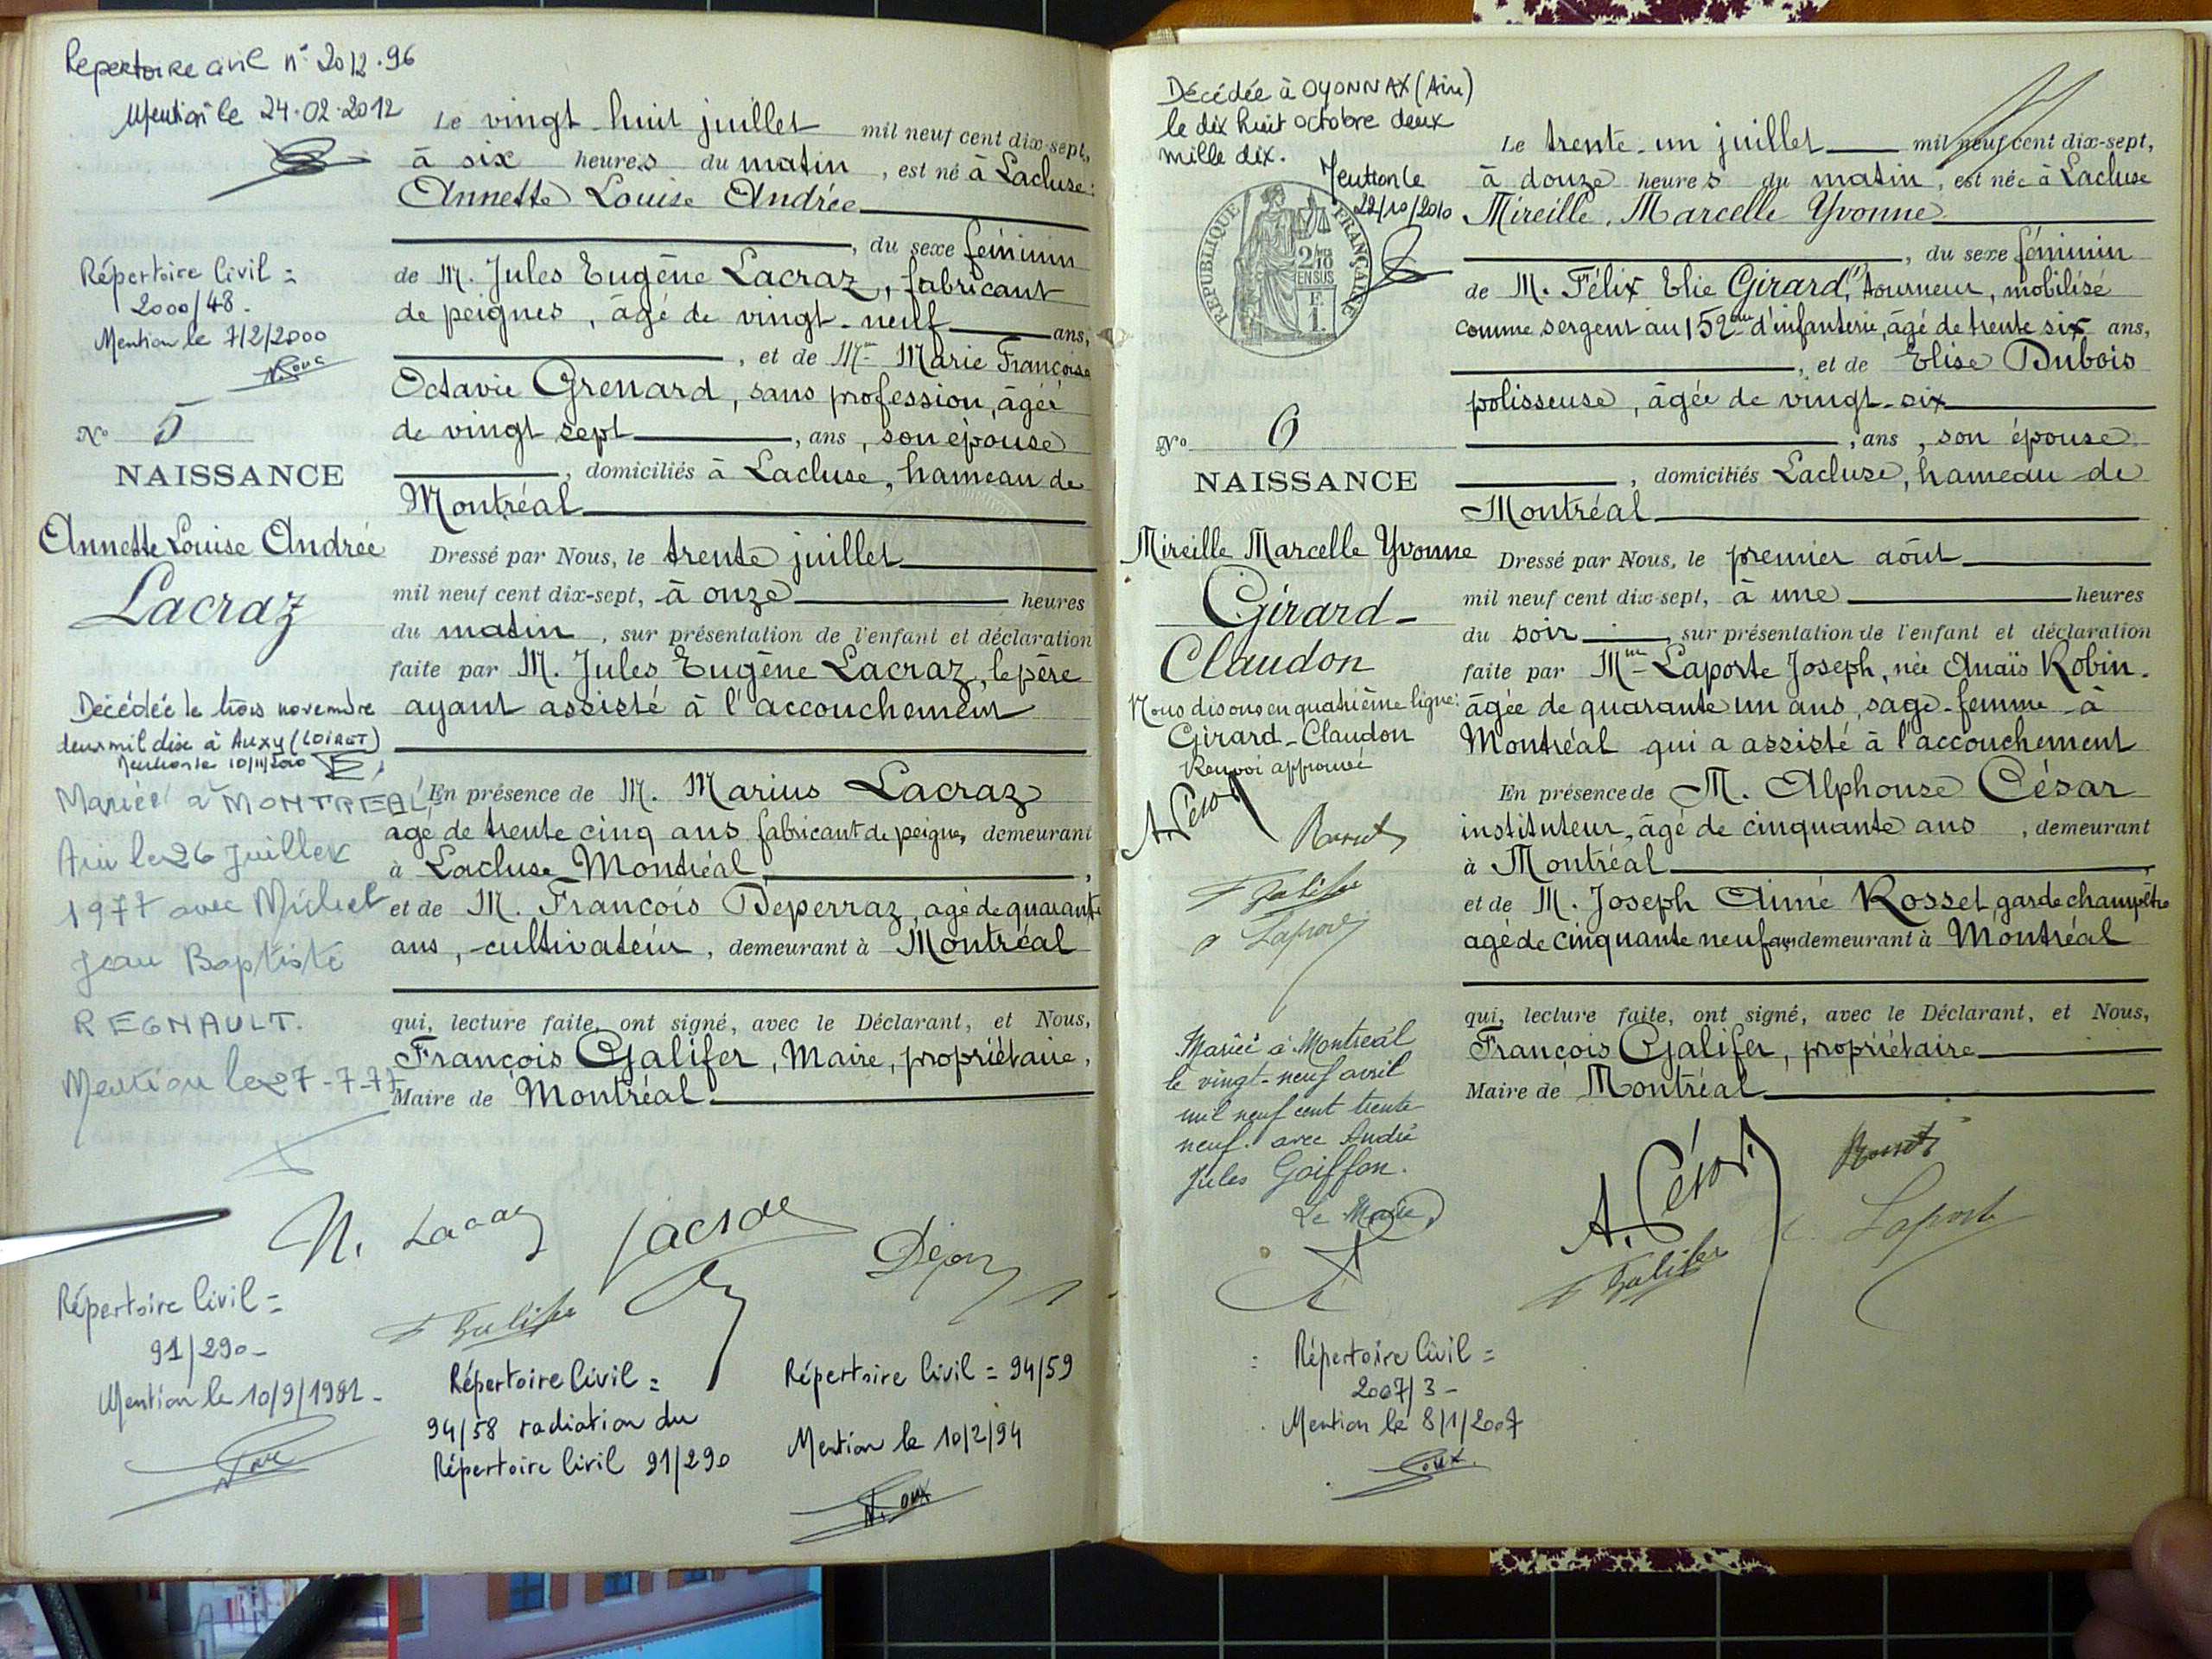 Repertoire civil n° 2012.96
Mention le 24.02.2012
Répertoire Civil =
2000/48.
Mention le 7/2/2000
N° 5
NAISSANCE
Annette Louise Andrée
Lacraz
Décédée le trois novembre
deux mil dix à Auxy (LOIRET)
Mention le 10/11/2010
Mariée à MONTREAL,
Ain le 26 Juillet
1977 avec Michel
Jean Baptiste
REGNAULT.
Mention le 27-7-77
Le vingt-huit juillet mil neuf cent dix-sept,
à six heures du matin, est né à Lacluse:
Annette Louise Andrée
, du sexe féminin
de M. Jules Eugène Lacraz, fabricant
de peignes, âgé de vingt-neuf ans,
, et de Mme Marie Françoise
Octavie Grenard, sans profession, âgée
de vingt sept, ans, son épouse
, domiciliés à Lacluse, hameau de
Montréal
Dressé par Nous, le trente juillet
mil neuf cent dix-sept, à onze heures
du matin, sur présentation de l'enfant et déclaration
faite par M. Jules Eugène Lacraz, le père
ayant assisté à l'accouchement
En présence de M. Marius Lacraz
agé de trente cinq ans fabricant de peignes, demeurant
à Lacluse-Montréal,
et de M. François Déperraz, agé de quarante
ans, cultivateur, demeurant à Montréal
qui, lecture faite, ont signé, avec le Déclarant, et Nous,
François Galifer, Maire, propriétaire,
Maire de Montréal.
Répertoire Civil =
91/290-
Mention le 10/9/1991-
Répertoire Civil =
94/58 radiation du
Répertoire Civil 91/290
Répertoire Civil = 94/59
Mention le 10/2/94
Décédée à OYONNAX (Ain)
le dix huit octobre deux
mille dix.
Mention le
22/10/2010
RÉPUBLIQUE FRANÇAISE
N° 6
NAISSANCE
Mireille Marcelle Yvonne
Girard-
Claudon
Nous disons en quatrième ligne:
Girard-Claudon
Renvoi approuvé
A. César
Rosset
F Galifer
Laporte
Mariée à Montréal
le vingt-neuf avril
mil neuf cent trente
neuf. avec André
Jules Goiffon.
Le Maire,
Le trente-un juillet mil neuf cent dix-sept,
à douze heures du matin, est née à Lacluse
Mireille, Marcelle Yvonne
, du sexe féminin
de M. Félix Elie Girard, tourneur, mobilisé
comme sergent au 152me d'infanterie, âgé de trente six ans,
, et de Elise Dubois
polisseuse, âgée de vingt-six
, ans, son épouse
, domiciliés Lacluse, hameau de
Montréal
Dressé par Nous, le premier août
mil neuf cent dix-sept, à une heures
du soir, sur présentation de l'enfant et déclaration
faite par Mme Laporte Joseph, née Anaïs Robin.
âgée de quarante un ans, sage-femme à
Montréal qui a assisté à l'accouchement
En présence de M. Alphonse César
instituteur, âgé de cinquante ans, demeurant
à Montréal,
et de M. Joseph Aimé Rosset, garde champêtre
agé de cinquante neuf ans, demeurant à Montréal
qui, lecture faite, ont signé, avec le Déclarant, et Nous,
François Galifer, propriétaire
Maire de Montréal
A. César
Rosset
F Galifer
Laporte
Répertoire Civil =
2007/3-
Mention le 8/1/2007